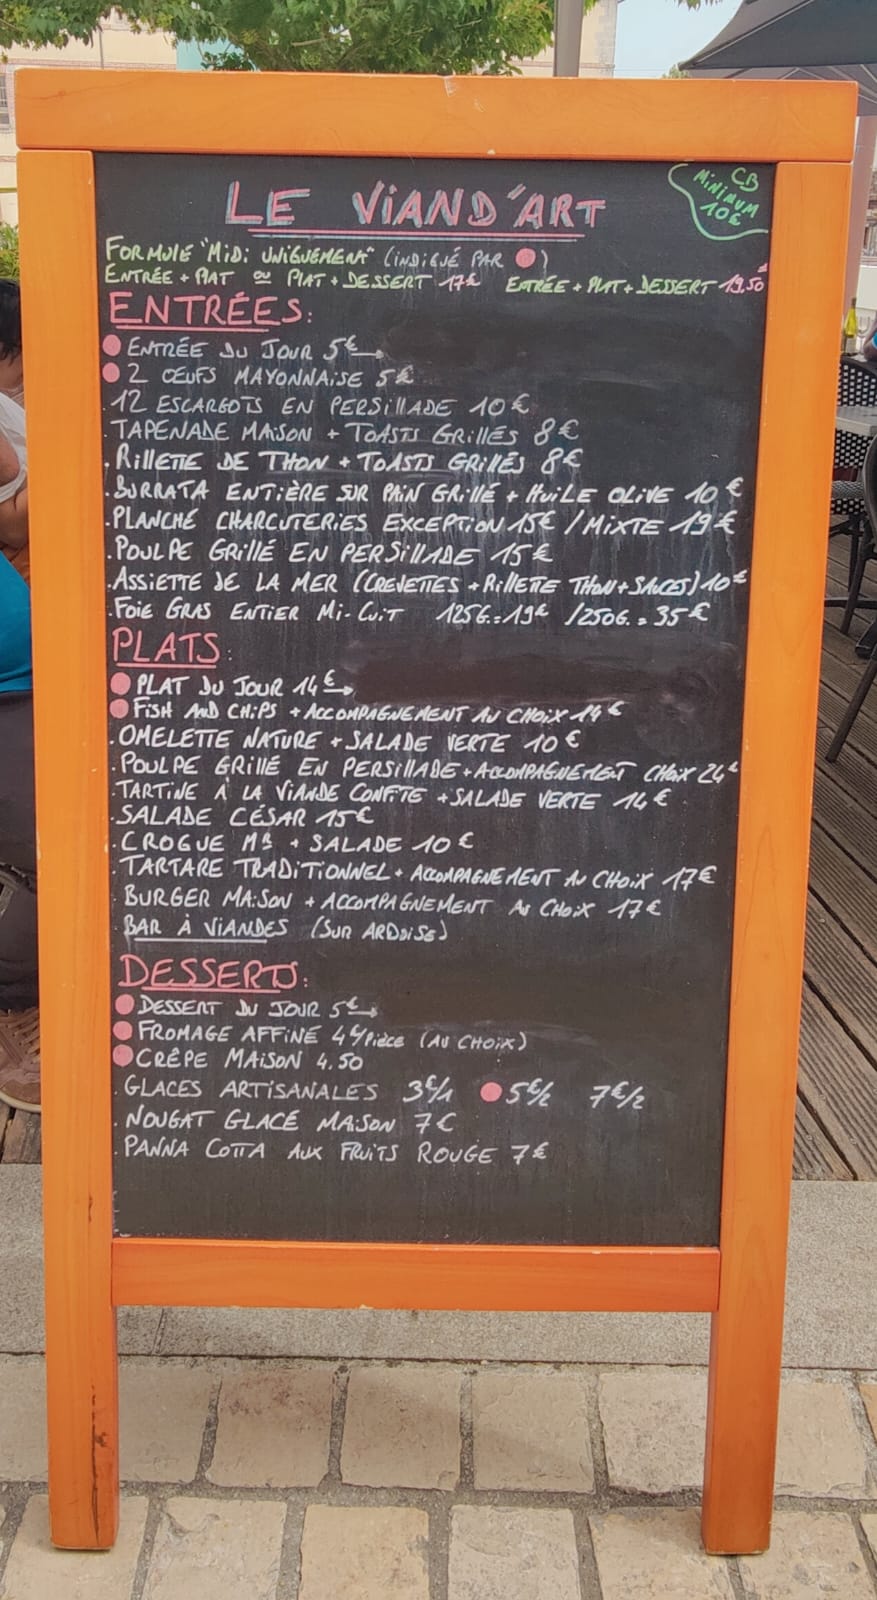 LE VIAND'ART
CB
MINIMUM
10€
FORMULE "MIDI UNIQUEMENT" (INDIQUÉ PAR )
ENTRÉE + PLAT OU PLAT + DESSERT 17€ ENTRÉE + PLAT + DESSERT 19.50€
ENTRÉES:
ENTRÉE DU JOUR 5€
2 ŒUFS MAYONNAISE 5€
.12 ESCARGOTS EN PERSILLADE 10€
.TAPENADE MAISON + TOASTS GRILLÉS 8€
.RILLETTE DE THON + TOASTS GRILLÉS 8€
.BURRATA ENTIÈRE SUR PAIN GRILLÉ + HUILE OLIVE 10€
.PLANCHE CHARCUTERIES EXCEPTION 15€ / MIXTE 19€
.POULPE GRILLÉ EN PERSILLADE 15€
.ASSIETTE DE LA MER (CREVETTES + RILLETTE THON + SAUCES) 10€
.FOIE GRAS ENTIER MI-CUIT 125G.=19€ /250G.=35€
PLATS:
PLAT DU JOUR 14€
FISH AND CHIPS + ACCOMPAGNEMENT AU CHOIX 14€
.OMELETTE NATURE + SALADE VERTE 10€
.POULPE GRILLÉ EN PERSILLADE + ACCOMPAGNEMENT CHOIX 24€
.TARTINE À LA VIANDE CONFITE + SALADE VERTE 14€
.SALADE CÉSAR 15€
.CROQUE MR + SALADE 10€
.TARTARE TRADITIONNEL + ACCOMPAGNEMENT AU CHOIX 17€
.BURGER MAISON + ACCOMPAGNEMENT AU CHOIX 17€
.BAR À VIANDES (SUR ARDOISE)
DESSERTS:
DESSERT DU JOUR 5€
FROMAGE AFFINÉ 4€/Pièce (AU CHOIX)
CRÊPE MAISON 4.50
.GLACES ARTISANALES 3€/1 5€/2 7€/2
.NOUGAT GLACÉ MAISON 7€
.PANNA COTTA AUX FRUITS ROUGE 7€